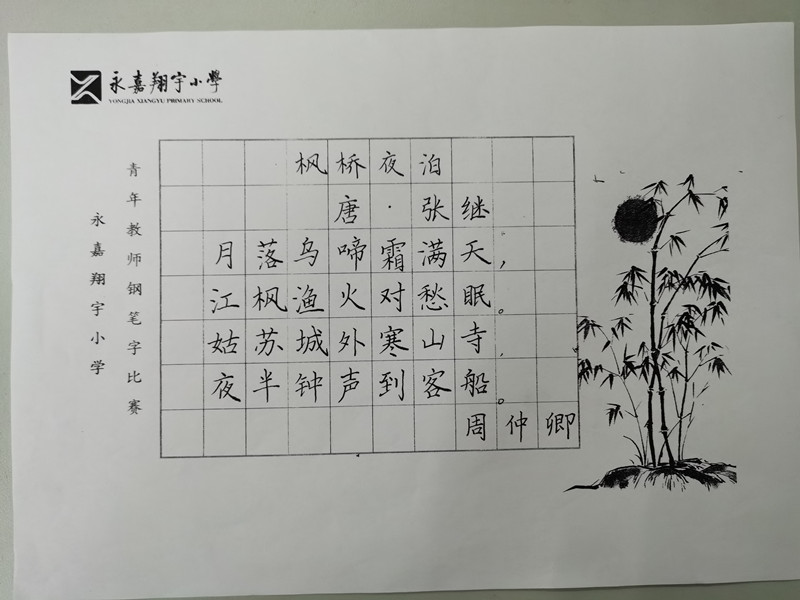 永嘉翔宇小學
YONGJIA XIANGYU PRIMARY SCHOOL
青年教师钢笔字比赛
永嘉翔宇小学
枫桥夜泊
唐·张继
月落乌啼霜满天，
江枫渔火对愁眠。
姑苏城外寒山寺，
夜半钟声到客船。
周仲卿